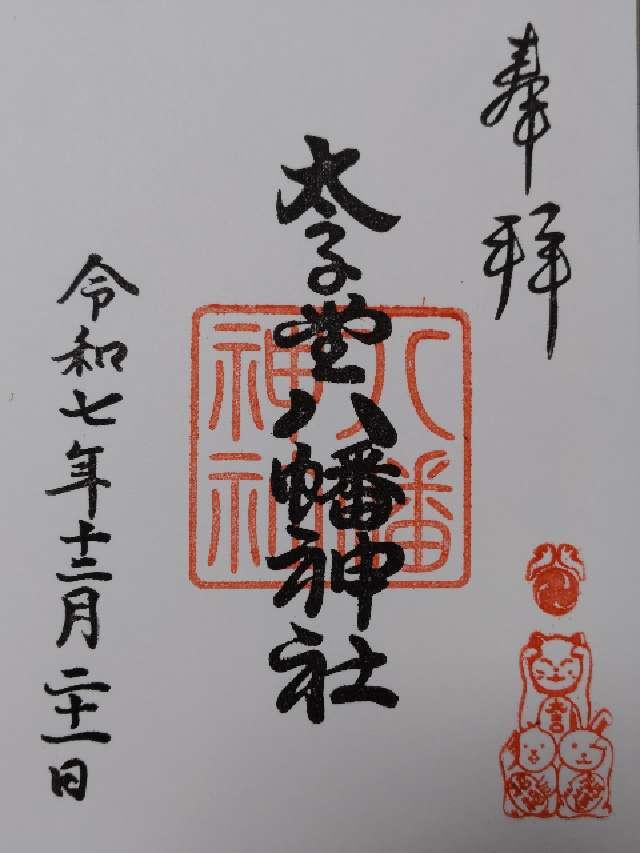 奉拝
太子堂八幡神社
八幡
神社
令和七年十二月二十一日